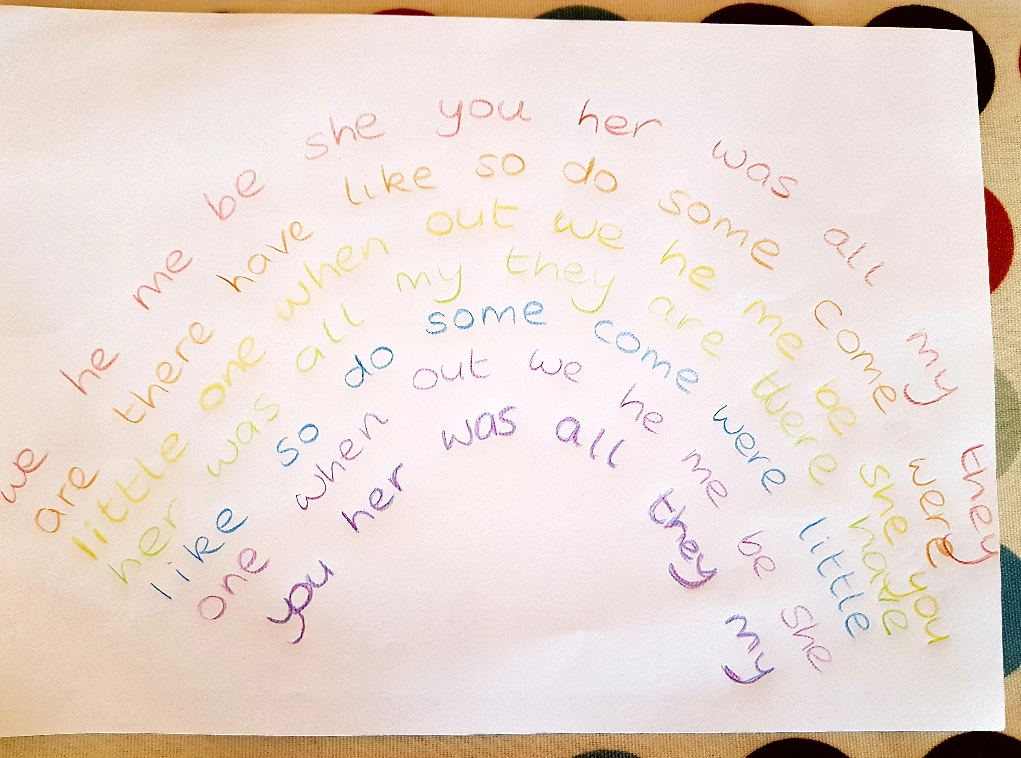 we he me be she you her was all my they
are there have like so do some come were
little one when out we he me be she you
her was all my they are there have
like so do some come were little
one when out we he me be she
you her was all they my